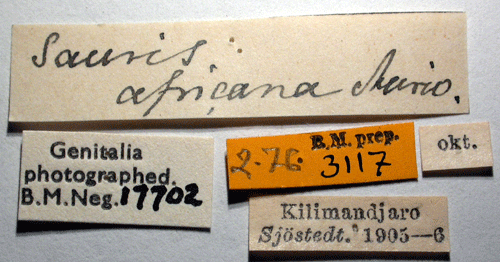 Sauris
africana Auriv.
Genitalia
photographed.
B.M.Neg. 17702
B.M. prep.
2-76. 3117
okt.
Kilimandjaro
Sjöstedt. 1905—6